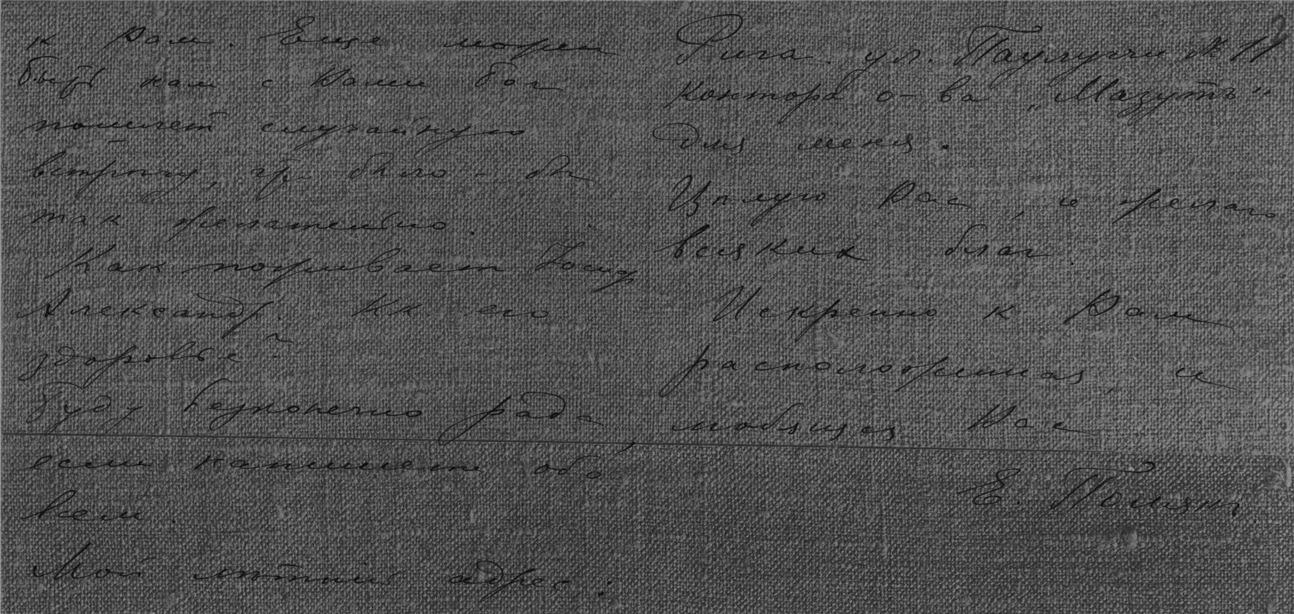 к Вам. Еще может
быть нам с Вами бог
пошлет случайную
встречу, было-бы
так желательно.
Как поживает Іосиф
Александр. Кк его
здоровье?
Буду безконечно рада,
если напишете обо
всем.
Мой летний адрес:
Рига. ул. Паулуччи № 11
Контора о-ва „Мазутъ"
для меня.
Целую Вас, и желаю
всяких благ.
Искренно к Вам
расположенная, и
любящая Вас
Е.